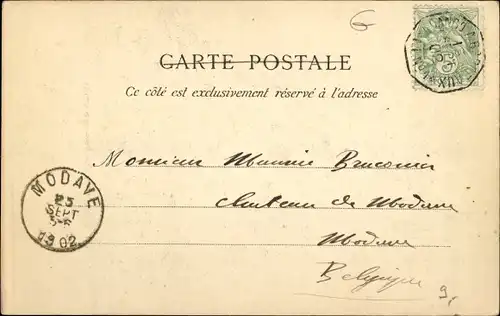 6
CARTE POSTALE
Ce côté est exclusivement réservé à l'adresse
Monsieur Maurice Braconier
Chateau de Modave
Modave
Belgique
9.
MODAVE
25
SEPT
1902